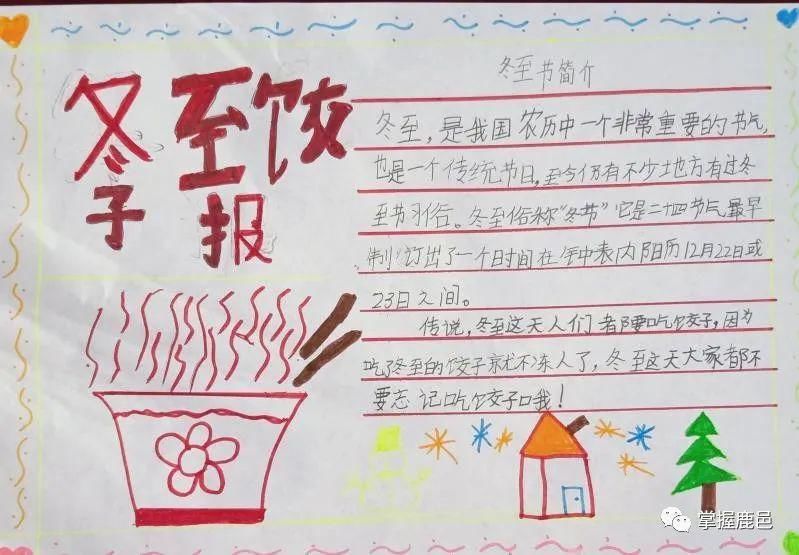 冬至饺
子报
冬至节简介
冬至，是我国农历中一个非常重要的节气，
也是一个传统节日，至今仍有不少地方有过冬
至节习俗。冬至俗称“冬节”它是二十四节气最早
制订出了一个日时间在年中表内阳历12月22日或
23日之间。
传说，冬至这天人们都要吃饺子，因为
吃了冬至的饺子就不冻人了，冬至这天大家都不
要忘记吃饺子哦！
掌握鹿邑